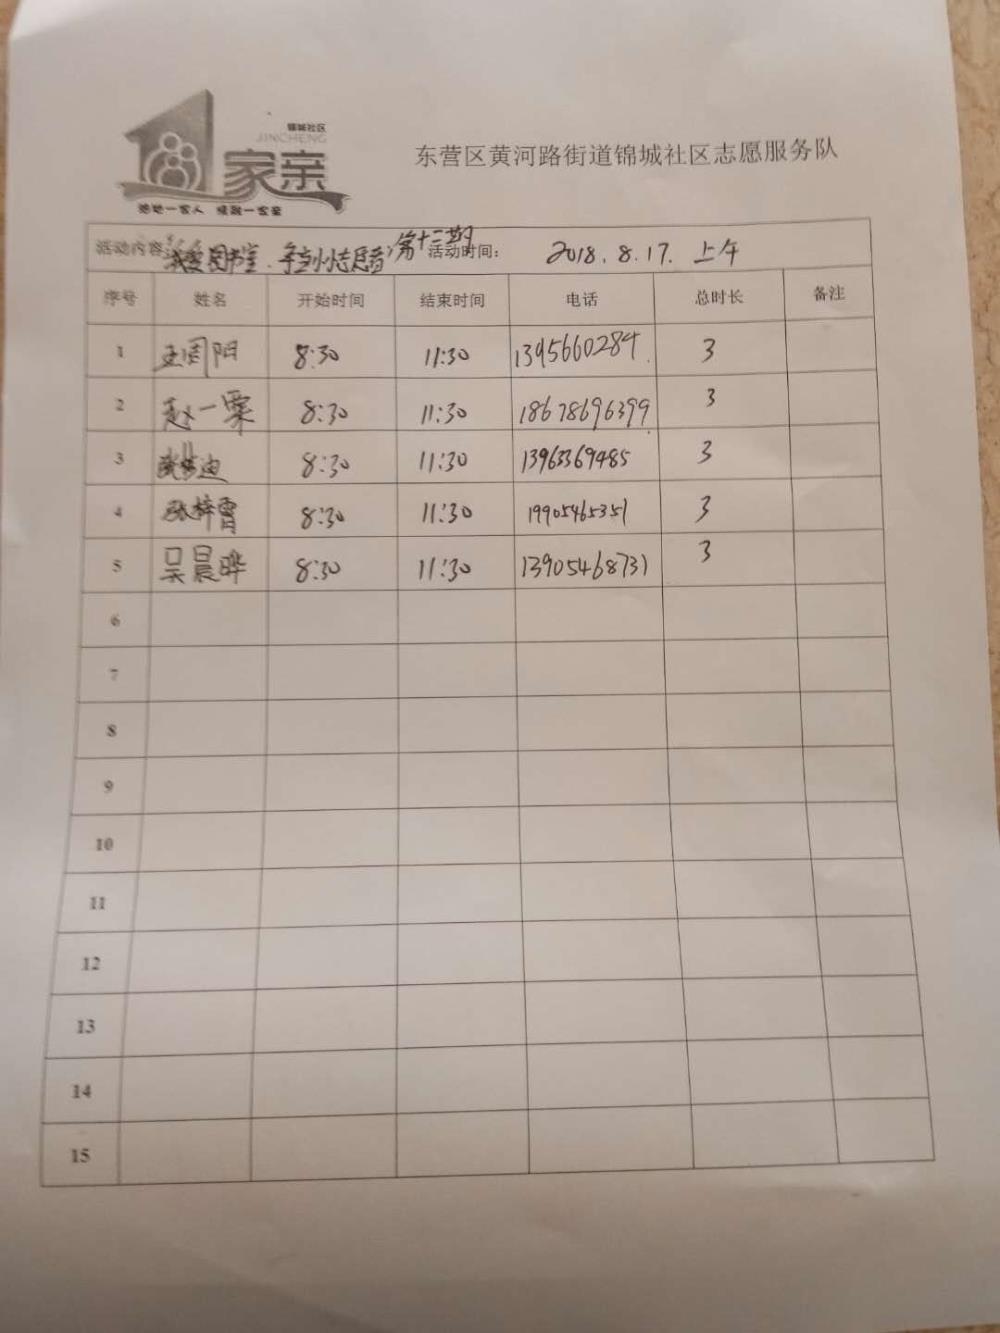 锦城社区
JINCHENG
家亲
东营区黄河路街道锦城社区志愿服务队
活动内容 我爱图书室.争当小志愿者 第十三期 活动时间: 2018.8.17.上午
序号 姓名 开始时间 结束时间 电话 总时长 备注
1 阳 8:30 11:30 1395660284 3
2 赵一粟 8:30 11:30 18678696399 3
3 迪 8:30 11:30 13963369485 3
4 张梓 8:30 11:30 19905465351 3
5 吴晨晔 8:30 11:30 13905468731 3
6
7
8
9
10
11
12
13
14
15